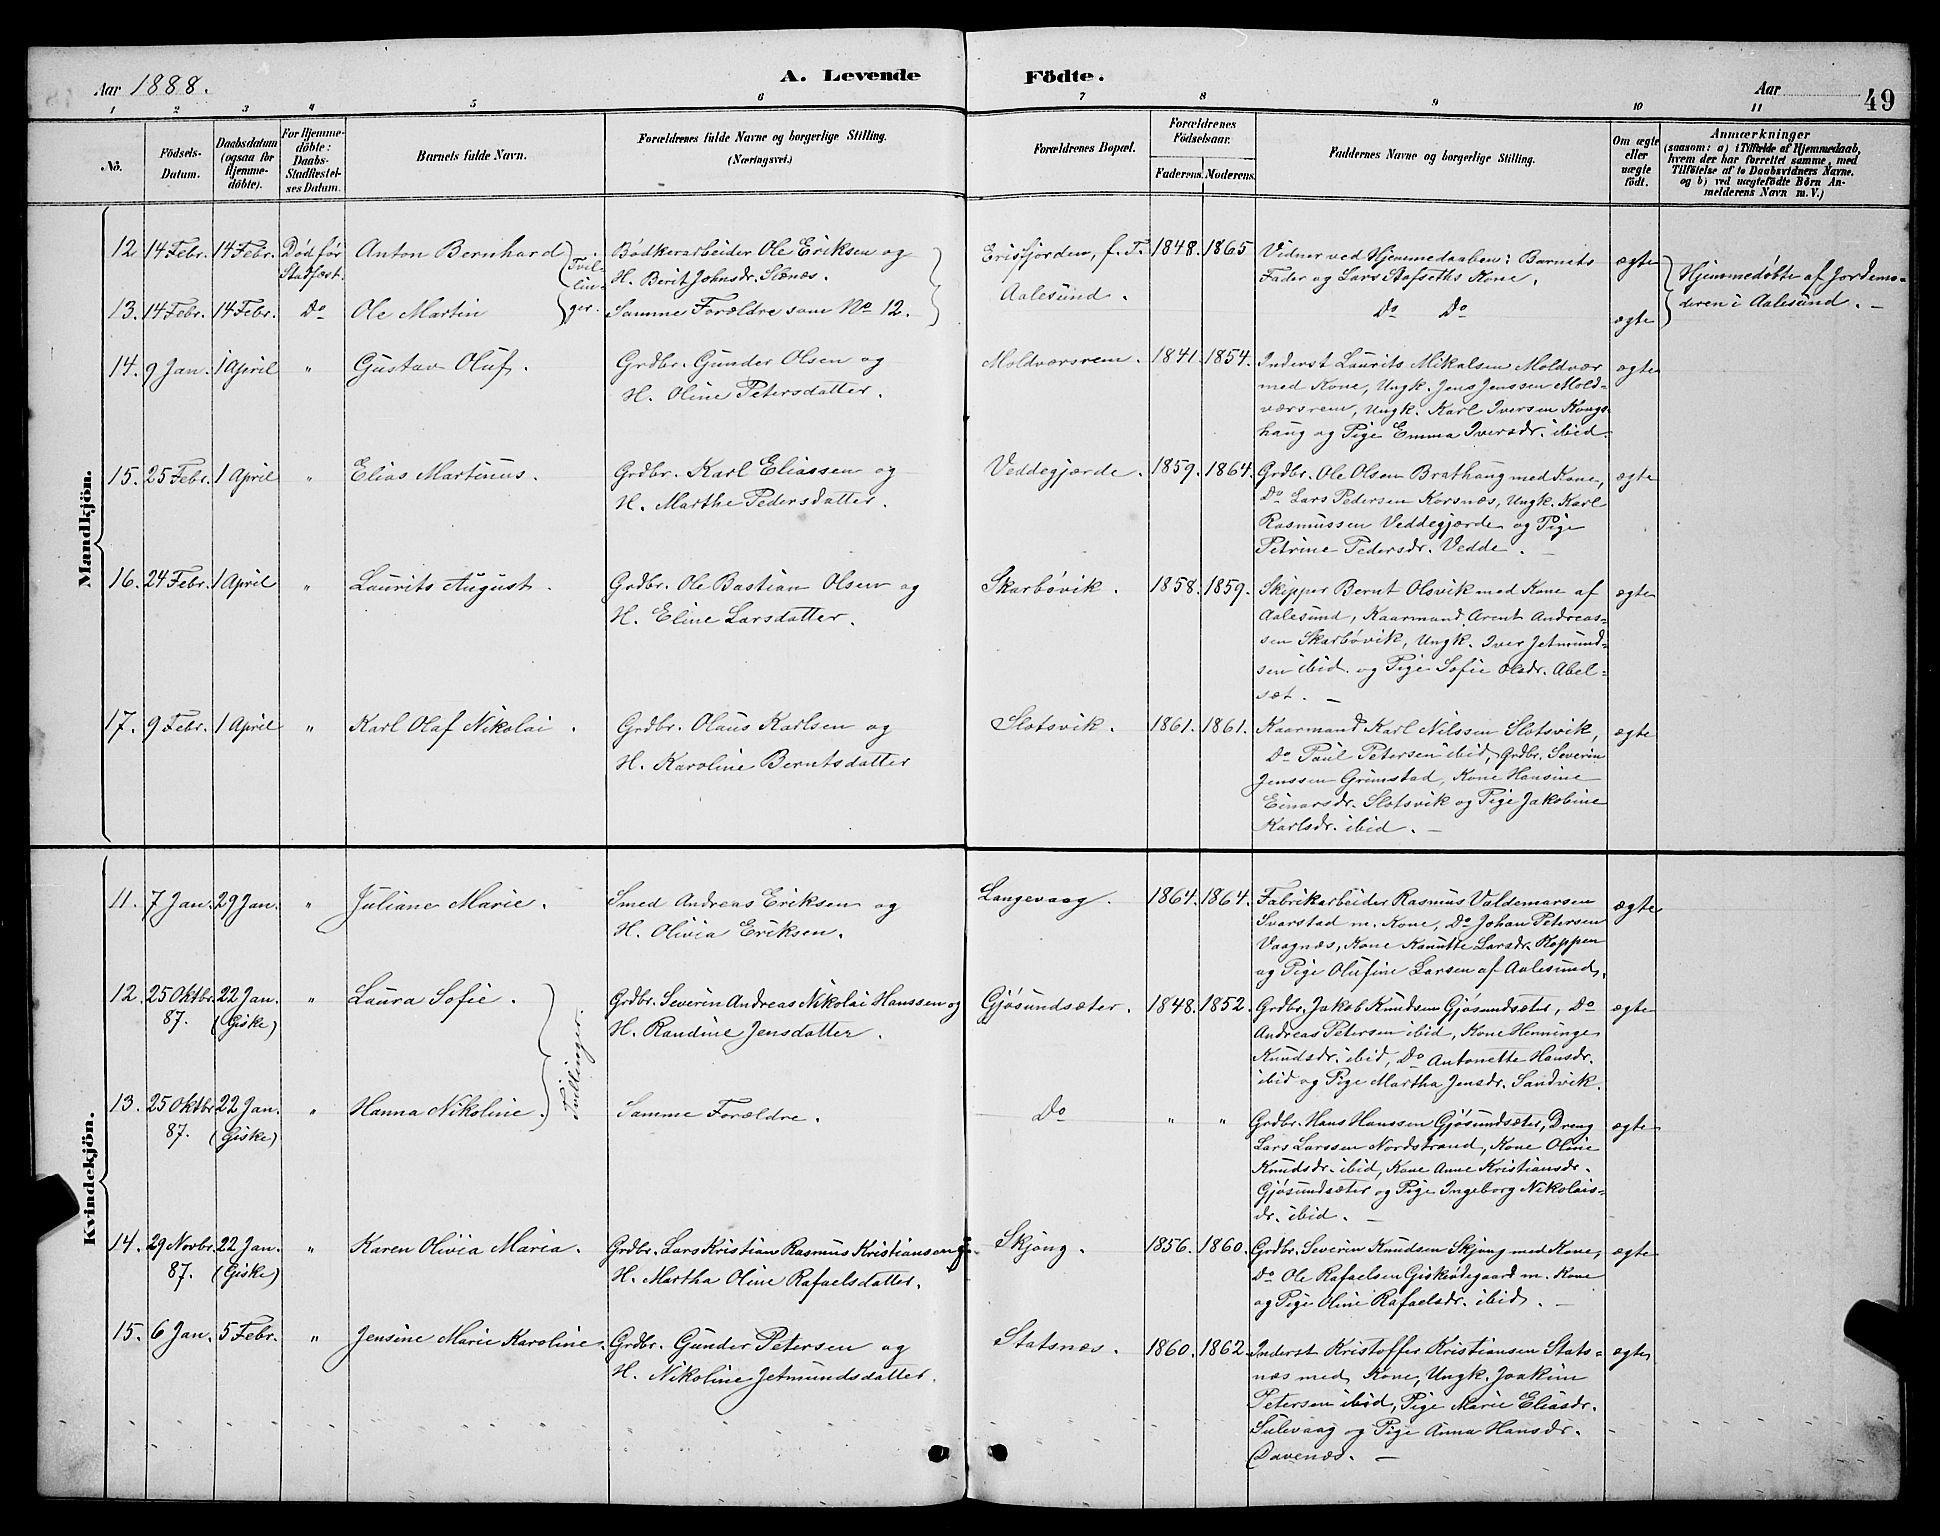 Aar 1888.
A. Levende Födte.
Aar
49
1 2 3 4 5 6 7 8 9 10 11
No.
Födsels-Datum.
Daabsdatum (ogsaa for Hjemme-döbte).
For Hjemme-döbte: Daabs-Stadfæstel-ses Datum.
Barnets fulde Navn.
Forældrenes fulde Navne og borgerlige Stilling. (Næringsvei.)
Forældrenes Bopæl.
Forældrenes Födselsaar.
Faderens. Moderens.
Faddernes Navne og borgerlige Stilling.
Om ægte eller uægte födt.
Anmærkninger
(saasom: a) i Tilfælde af Hjemmedaab,
hvem der har forrettet samme, med
Tilföielse af to Daabsvidners Navne.
og b) ved uægtefödte Börn An-
melderens Navn m. V.)
Mandkjön.
12. 14 Febr. 14 Febr. Død før Stadfæst. Anton Bernhard
Tvillinger.
Bødkerarbeider Ole Eriksen og
H. Berit Johnsdr. Slenæs.
Erisfjorden, f. T.
Aalesund.
1848. 1865
Vidner ved Hjemmedaaben: Barnets
Fader og Lars Stafseths Kone.
ægte
Hjemmedøbte af Jordemo-
deren i Aalesund. —
13. 14 Febr. 14 Febr. Do Ole Martin
Samme Forældre som No 12.
Do Do
ægte
14. 9 Jan. 1 April " Gustav Oluf.
Grdbr. Gunder Olsen og
H. Oline Petersdatter.
Moldværsrem. 1841. 1854.
Inderst Laurits Mikalsen Moldvær
med Kone, Ungk. Jens Jenssen Mold-
værsrem, Ungk. Karl Iversen Kongs-
haug og Pige Emma Iversdr. ibid.
ægte
15. 25 Febr. 1 April " Elias Martinus.
Grdbr. Karl Eliassen og
H. Marthe Pedersdatter.
Veddegjærde. 1859. 1864.
Grdbr. Ole Olsen Brathaug med Kone,
Do Lars Pedersen Korsnæs, Ungk. Karl
Rasmussen Veddegjærde og Pige
Petrine Pedersdr. Vedde. —
ægte
16. 24 Febr. 1 April " Laurits August.
Grdbr. Ole Bastian Olsen og
H. Eline Larsdatter.
Skarbøvik. 1858. 1859.
Skipper Bernt Olsvik med Kone af
Aalesund, Kaarmand Arent Andreas-
sen Skarbøvik, Ungk. Iver Jetmund-
sen ibid. og Pige Sofie Olsdr. Abel-
sæt. —
ægte
17. 9 Febr. 1 April " Karl Olaf Nikolai.
Grdbr. Olaus Karlsen og
H. Karoline Berntsdatter
Slotsvik. 1861. 1861.
Kaarmand Karl Nilssen Slotsvik,
Do Paul Petersen ibid, Grdbr. Severin
Jenssen Grimstad, Kone Hansine
Einarsdr. Slotsvik og Pige Jakobine
Karlsdr. ibid. —
ægte
Kvindekjön.
11. 7 Jan. 29 Jan. " Juliane Marie.
Smed Andreas Eriksen og
H. Olivia Eriksen.
Langevaag. 1864. 1864.
Fabrikarbeider Rasmus Valdemarsen
Svarstad m. Kone, Do Johan Petersen
Vaagnæs, Kone Kanutte Larsdr. Koppen
og Pige Olufine Larsen af Aalesund.
ægte
12. 25 Oktbr. 87. 22 Jan. (Giske) " Laura Sofie.
Tvillinger.
Grdbr. Severin Andreas Nikolai Hanssen og
H. Randine Jensdatter.
Gjøsundsæter. 1848. 1852.
Grdbr. Jakob Knudsen Gjøsundsæter, Do
Andreas Petersen ibid, Kone Henninge
Knudsdr. ibid, Do Antonette Hansdr.
ibid og Pige Martha Jensdr. Sandvik.
ægte
13. 25 Oktbr 87. 22 Jan. (Giske) " Hanna Nikoline.
Samme Forældre.
Do " "
Grdbr. Hans Hanssen Gjøsundsæter, Dreng
Lars Larssen Nordstrand, Kone Oline
Knudsdr. ibid, Kone Anne Kristiansdr.
Gjøsundsæter og Pige Ingeborg Nikolais-
dr. ibid. —
ægte
14. 29 Novbr. 87. 22 Jan. (Giske) " Karen Olivia Maria.
Grdbr. Lars Kristian Rasmus Kristiansen og
H. Martha Oline Rafaelsdatter.
Skjong. 1856. 1860.
Grdbr. Severin Knudsen Skjong med Kone,
Do Ole Rafaelsen Giskeødegaard m. Kone
og Pige Oline Rafaelsdr. ibid. —
ægte
15. 6 Jan. 5 Febr. " Jensine Marie Karoline.
Grdbr. Gunder Petersen og
H. Nikoline Jetmundsdatter.
Statsnæs. 1860. 1862.
Inderst Kristoffer Kristiansen Stats-
næs med Kone, Ungk. Joakim
Petersen ibid, Pige Marie Eliasdr.
Sulevaag og Pige Anna Hansdr.
Davenæs. —
ægte